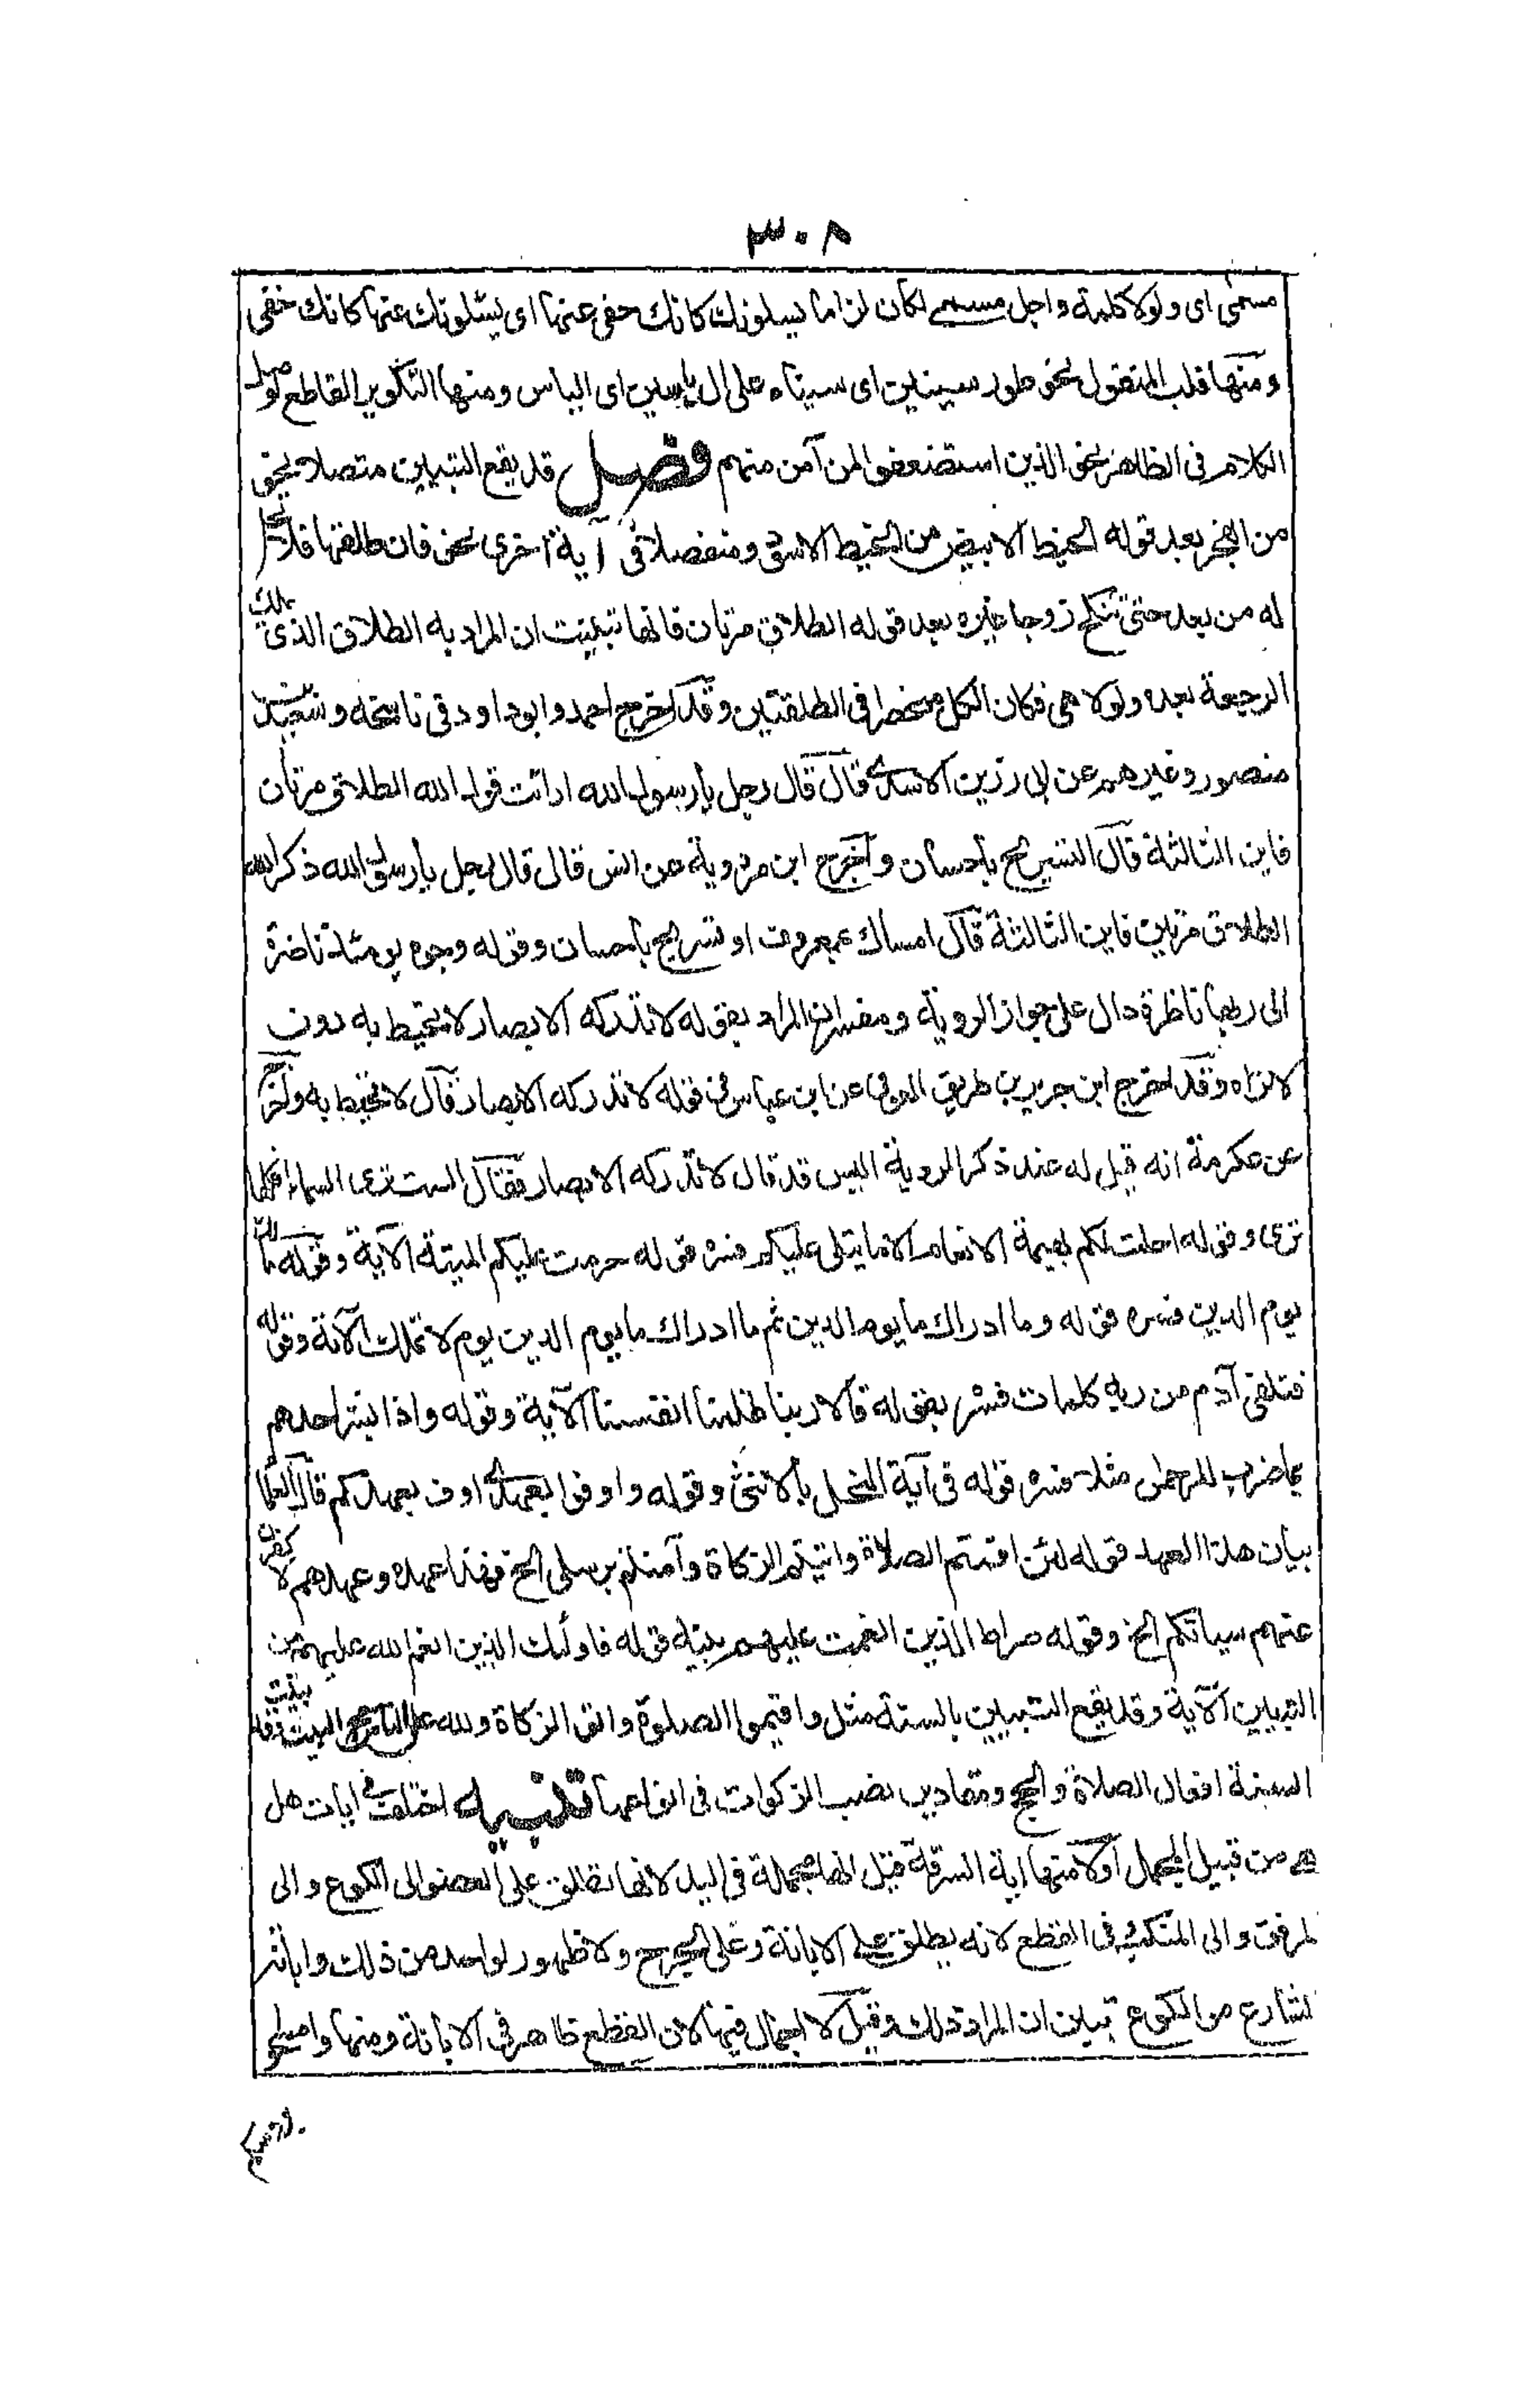 ٣٠٨
مسمى اى ولولا كلمة واجل مسمى لكان لزاما يسلونك كانك حفى عنها اى يسئلونك عنها كانك حفى
ومنها قلب المنقول نحو طور سينين اى سيناء على ال ياسين اى الياس ومنها التكوير القاطع لوصل
الكلام فى الظاهر نحو الذين استضعفوا لمن آمن منهم فصل قد يقع التبيين متصلا نحو
من الفجر بعد قوله الخيط الابيض من الخيط الاسود ومنفصلا فى آية اخرى نحو فان طلقها فلا تحل
له من بعد حتى تنكح زوجا غيره بعد قوله الطلاق مرتان فانها تبينت ان المراد به الطلاق الذى تملك
الرجعة بعده ولولا هى فكان الكل منحصرا فى الطلقتين وقد اخرج احمد وابو داود فى ناسخه وسعيد بن
منصور وغيرهم عن ابى رزين الاسدى قال قال رجل يا رسول الله ارائت قول الله الطلاق مرتان
فاين الثالثة قال التسريح باحسان واخرج ابن مردوية عن انس قال قال رجل يا رسول الله ذكر الله
الطلاق مرتين فاين الثالثة قال امساك بمعروف او تسريح باحسان وقوله وجوه يومئذ ناضرة
الى ربها ناظرة دال على جواز الروية ومفسر ان المراد بقوله لا تدركه الابصار لا تحيط به دون
لا تراه وقد اخرج ابن جرير من طريق العوفى عن ابن عباس فى قوله لا تدركه الابصار قال لا تحيط به واخرج
عن عكرمة انه قيل له عند ذكر الروية اليس قد قال لا تدركه الابصار فقال الست ترى السماء افكلها
ترى وقوله احلت لكم بهيمة الانعام الا ما يتلى عليكم فسره قوله حرمت عليكم الميتة الآية وقوله مالك
يوم الدين فسره قوله وما ادراك ما يوم الدين ثم ما ادراك ما يوم الدين يوم لا تملك الآية وقوله
فتلقى آدم من ربه كلمات فسر بقوله قالا ربنا ظلمنا انفسنا الآية وقوله واذا بشر احدهم
بما ضرب للرحمن مثلا فسره قوله فى آية النحل بالانثى وقوله واوفوا بعهدى اوف بعهدكم قال العلما
بيان هذا العهد قوله لئن اقمتم الصلاة واتيتم الزكاة وآمنتم برسلى الخ فهذا عهده وعهدهم لا كفرن
عنهم سياتكم الخ وقوله صراط الذين انعمت عليهم بينه قوله فاولئك الذين انعم الله عليهم من
النبيين الآية وقد يقع التبيين بالسنة مثل واقيموا الصلوة واتوا الزكاة ولله على الناس حج البيت وقد بينت
السنة افعال الصلاة والحج ومقادير نصب الزكوات فى انواعها تنبيه اختلف فى ايات هل
هى من قبيل المجمل او لا منها اية السرقة قيل انها مجملة فى اليد لانها تطلق على العضو الى الكوع والى
لمرفق والى المنكب وفى القطع لانه يطلق على الابانة وعلى الجرح ولا ظهور لواحد من ذلك وابانة
لشارع من الكوع تبين ان المراد ذلك وقيل لا اجمال فيها لان القطع ظاهر فى الابانة ومنها وامسحوا